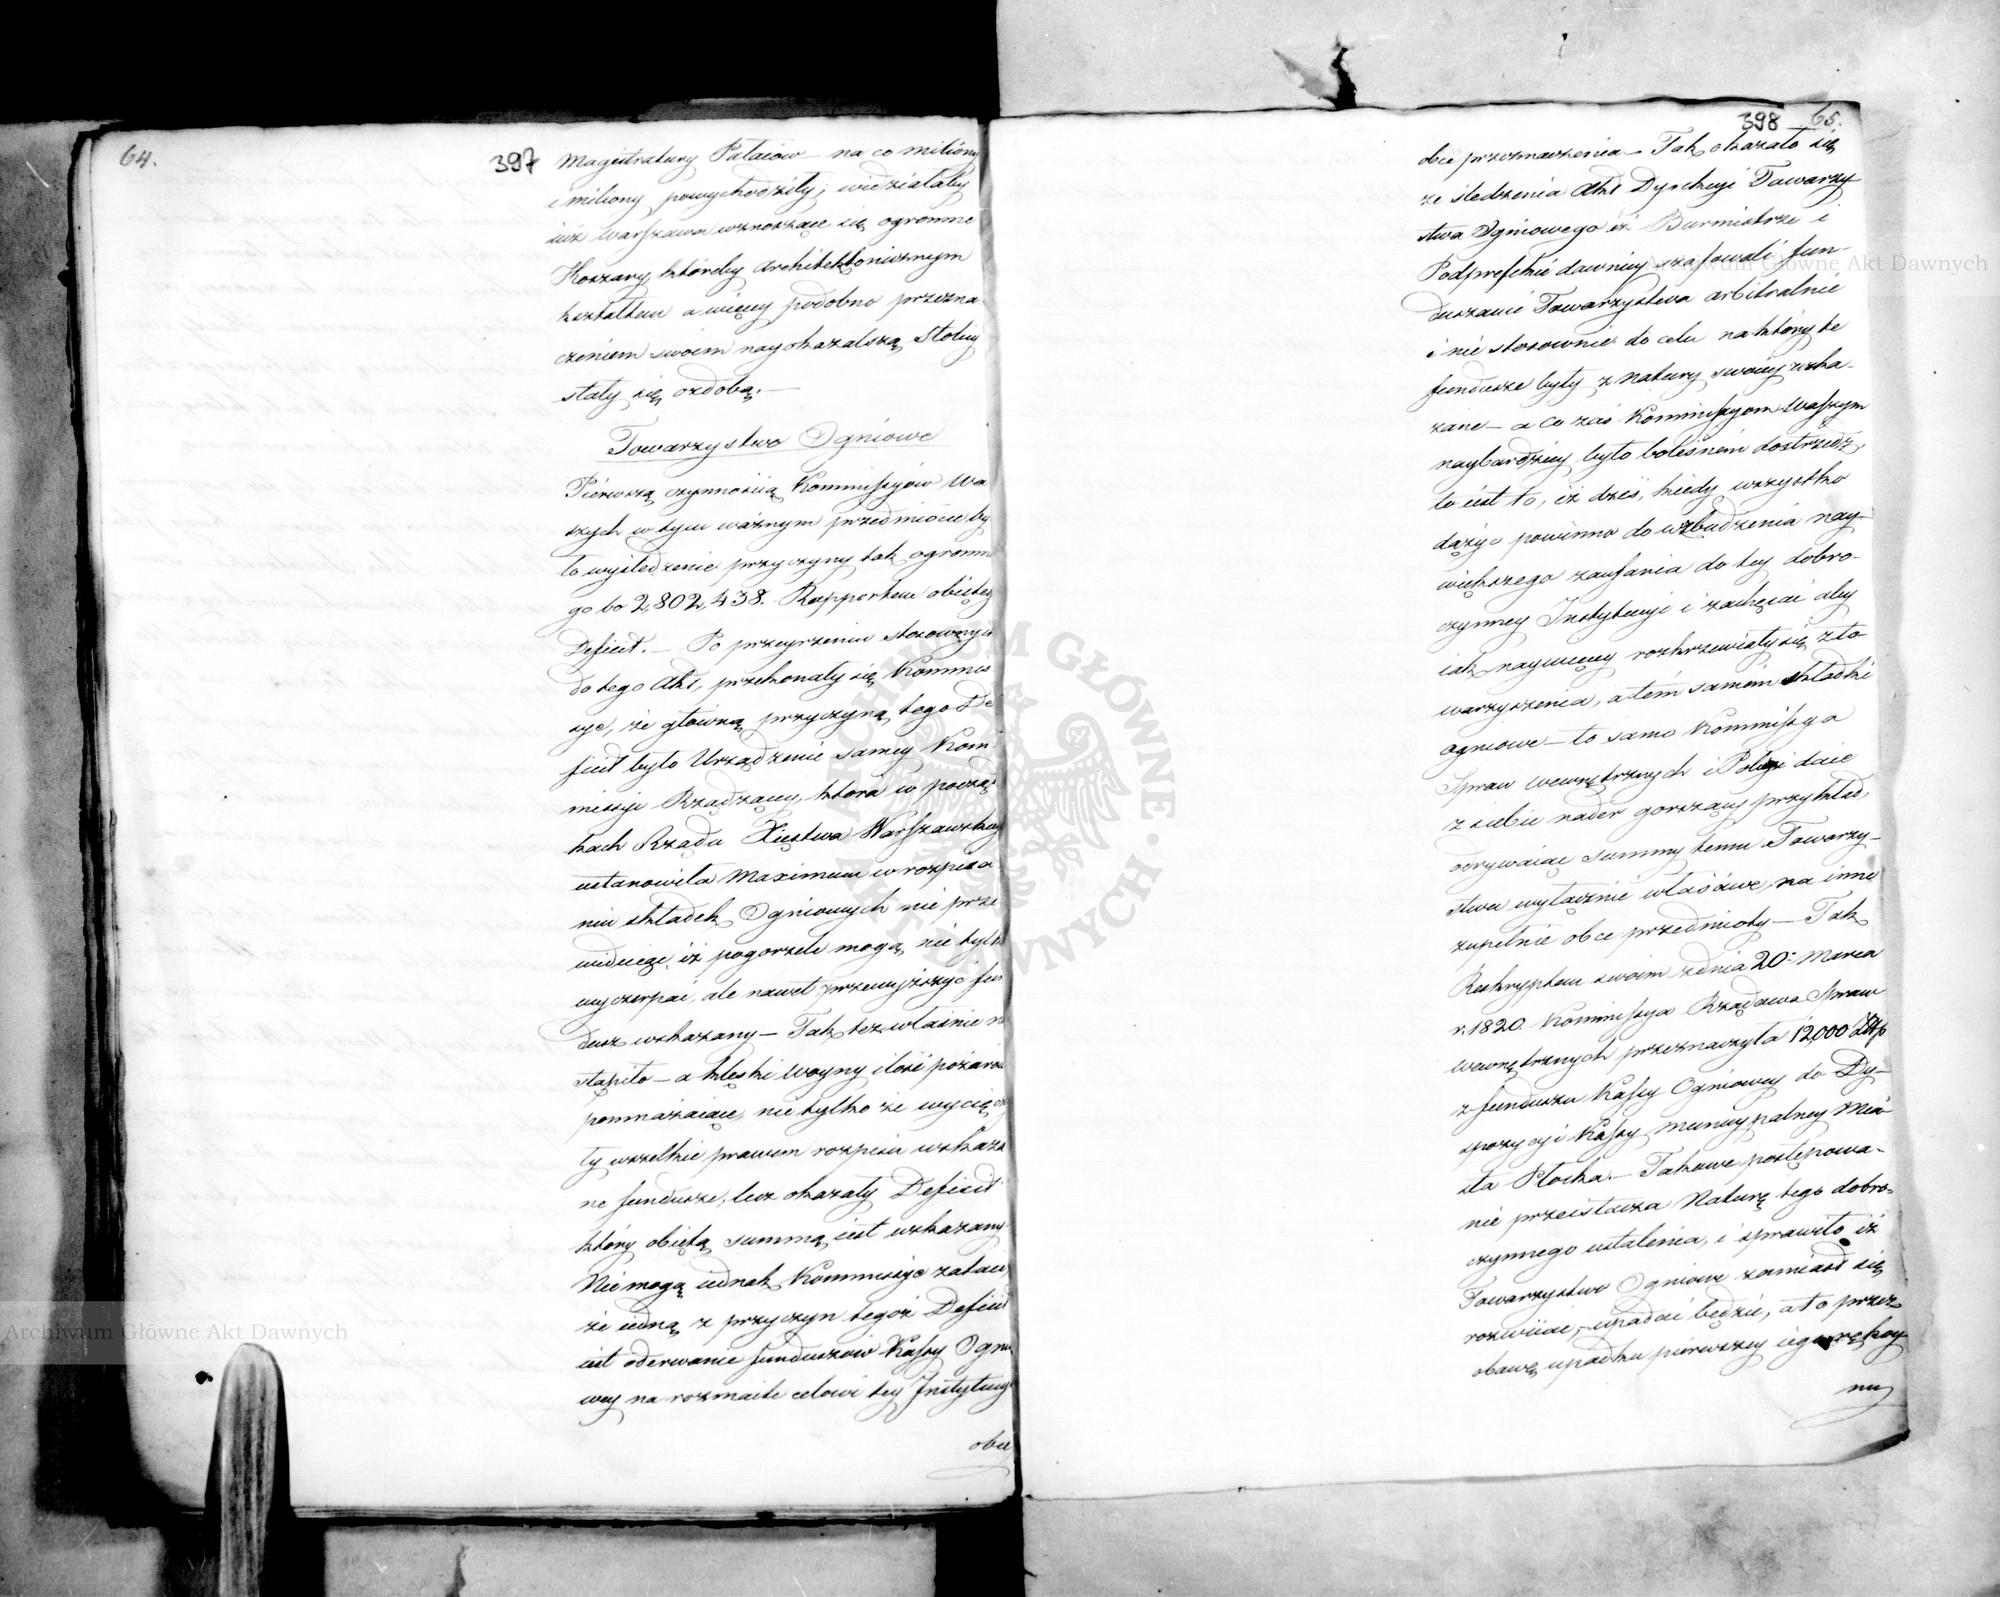 64.
397
Magistratury Pałaców – na co miliony
i miliony powychodziły; widziałaby
iuż Warszawa wznoszące się ogromne
Koszary, któreby Architektonicznym
kształtem a więcey podobno przezna
czeniem swoim nayokazalszą Stolicy
stały się ozdobą. –
Towarzystwo Ogniowe
Pierwszą czynnością Kommissyów Wa
szych w tym ważnym przedmiocie by
ło wyśledzenie przyczyny tak ogromne
go bo 2,802,438. Rapportem obiętego
Deficit. – Po przeyrzeniu stosownych
do tego Akt, przekonały się Kommis
sye, że główną przyczyną tego De
ficit było Urządzenie samey Kom
missyi Rządzącey, która w począt
kach Rządu Xięstwa Warszawskiego
ustanowiła Maximum w rozpisa
niu składek Ogniowych nie prze
widuiąc, iż pogorzele mogą nie tylko
wyczerpać, ale nawet przewyższyć fun
dusz wskazany – Tak też właśnie na
stąpiło – a klęski woyny ilość pożarów
pomnażaiące, nie tylko że wycięczy
ły wszelkie prawem rozpisu wskaza
ne fundusze, lecz okazały Deficit
który obiętą summą iest wskazany.
Nie mogą iednak Kommissye zataić,
że iedną z przyczyn tegoż Deficit
iest oderwanie funduszów Kassy Ognio
wey na rozmaite celowi tey Instytucyi
obce
398 65.
obce przeznaczenia – Tak okazało się
ze śledzenia Akt Dyrekcyi Towarzy
stwa Ogniowego iż Burmistrze i
Podprefekci dawniey szafowali fun–
duszami Towarzystwa arbitralnie
i nie stosownie do celu na który te
fundusze były z natury swoiey wska–
zane – a co zaś Kommissyom Waszym
naybardziey było boleśniem dostrzedz,
to iest to, iż dziś, kiedy wszystko
dążyć powinno do wzbudzenia nay–
większego zaufania do tey dobro–
czynney Instytucyi i zachęcać aby
iak naywięcey rozkrzewiały się sto
warzyszenia, a tém samém składki
ogniowe – to samo Kommissya
Spraw Wewnętrznych i Policyi daie
z siebie nader gorszący przykład,
odrywaiąc summy temu Towarzy–
stwu wyłącznie właściwe, na inne
zupełnie obce przedmioty – Tak
Reskryptem swoim z dnia 20: Marca
r. 1820. Kommissya Rządowa Spraw
Wewnętrznych przeznaczyła 12,000 Złp
z funduszu Kassy Ogniowey do Dy–
spozycyi Kassy Municypalney Mia–
sta Płocka. – Takowe postępowa–
nie przeistacza Naturę tego dobro–
czynnego ustalenia, i sprawiło, iż
Towarzystwo Ogniowe zamiast się
rozwiiać, – upadać będzie, a to przez
obawę upadku pierwszey iego rękoy
mi